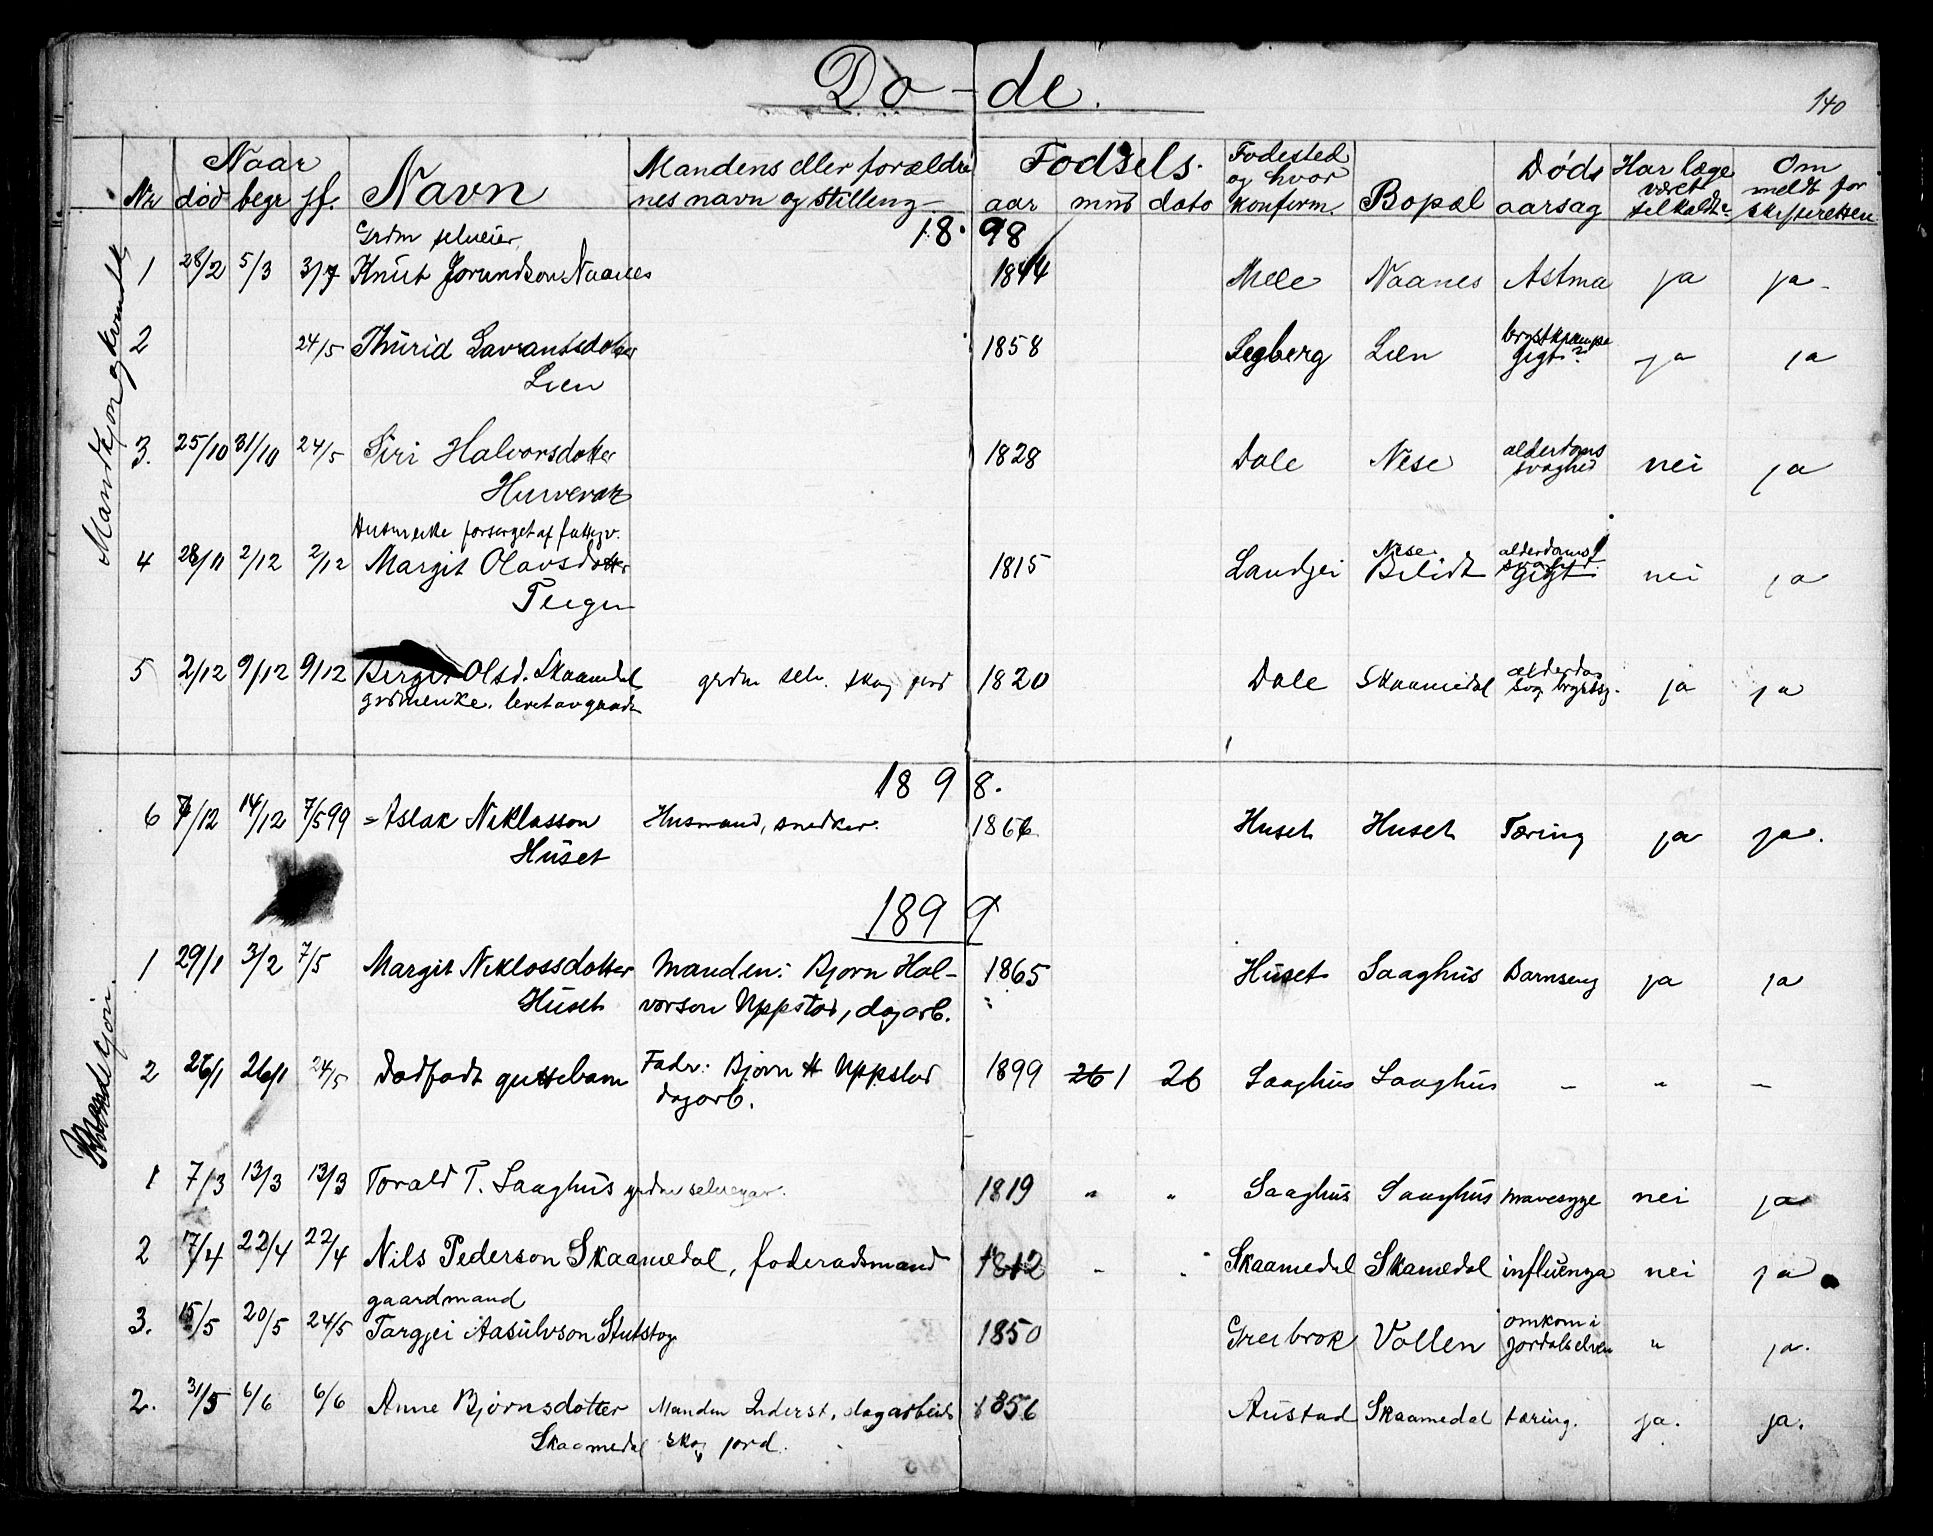 Dø-de.
140
Nr
Naar
død begr jf.
Navn
Mandens eller forældre
nes navn og stilling
Fodsels.
aar mnd dato
Fodested
og hvor
konferm.
Bopæl
Døds
aarsag
Har læge
været
tilkaldt?
Om
meldt for
skifteretten
Mandkjøn og kvindek.
1898
Grdm selveier
1 28/2 5/3 3/7 Knut Jorundson Naanes 1844 Mele Naanes Astma ja ja
brystkrampe
2 24/5 Thurid Lavrantsdotter 1858 Legberg Lien Gigt? ja ja
Lien
alderdoms
3. 25/10 31/10 24/5 Siri Halvorsdotter 1828 Dale Nese svaghed nei ja
Husmenke forsørget af fattigv.
Nese alderdoms
svaghed
4 28/11 2/12 2/12 Margit Olavsdotter 1815 Landjei gigt nei ja
Teigen
alderdo
5 2/12 9/12 9/12 Birgit Olsd. Skaamedal grdm selv. skog jord 1820 Dale Skaamedal svag. brystsy. ja ja
grdmenke. levet av gaarde
1898.
6 7/12 14/12 7/5 99 Aslak Niklasson Husmand, snedker. 1866 Huset Huset Tæring ja ja.
Huset
1899
1 29/1 3/2 7/5 Margit Niklossdotter Manden: Bjorn Hal- 1865 Huset Saaghus Barnseng ja ja
Huset vorson Uppstad, dagarb.
2 26/1 26/1 24/5 Dødfødt guttebarn Fadr: Bjorn H Uppstad 1899 26 1 26 Saaghus Saaghus – " –
dagarb.
Mandskjøn.
1 7/3 13/3 13/3 Torald T. Saaghus grdm selveigar. 1819 " " Saaghus Saaghus Mavesyge nei ja
2 17/4 22/4 22/4 Nils Pederson Skaamedal, foderadsmand 1812 " " Skaamedal Skamedal influenza nei ja
gaardmand omkom i
3. 15/5 20/5 24/5 Targjei Aasulvson Stutstog 1850 Greibrok Vollen Jordalselven " ja.
2. 31/5 6/6 6/6 Anne Bjørnsdotter Manden Inderst, dagarbeid 1856 Austad Skaamedal tæring. ja. ja.
Skaamedal skog jord.